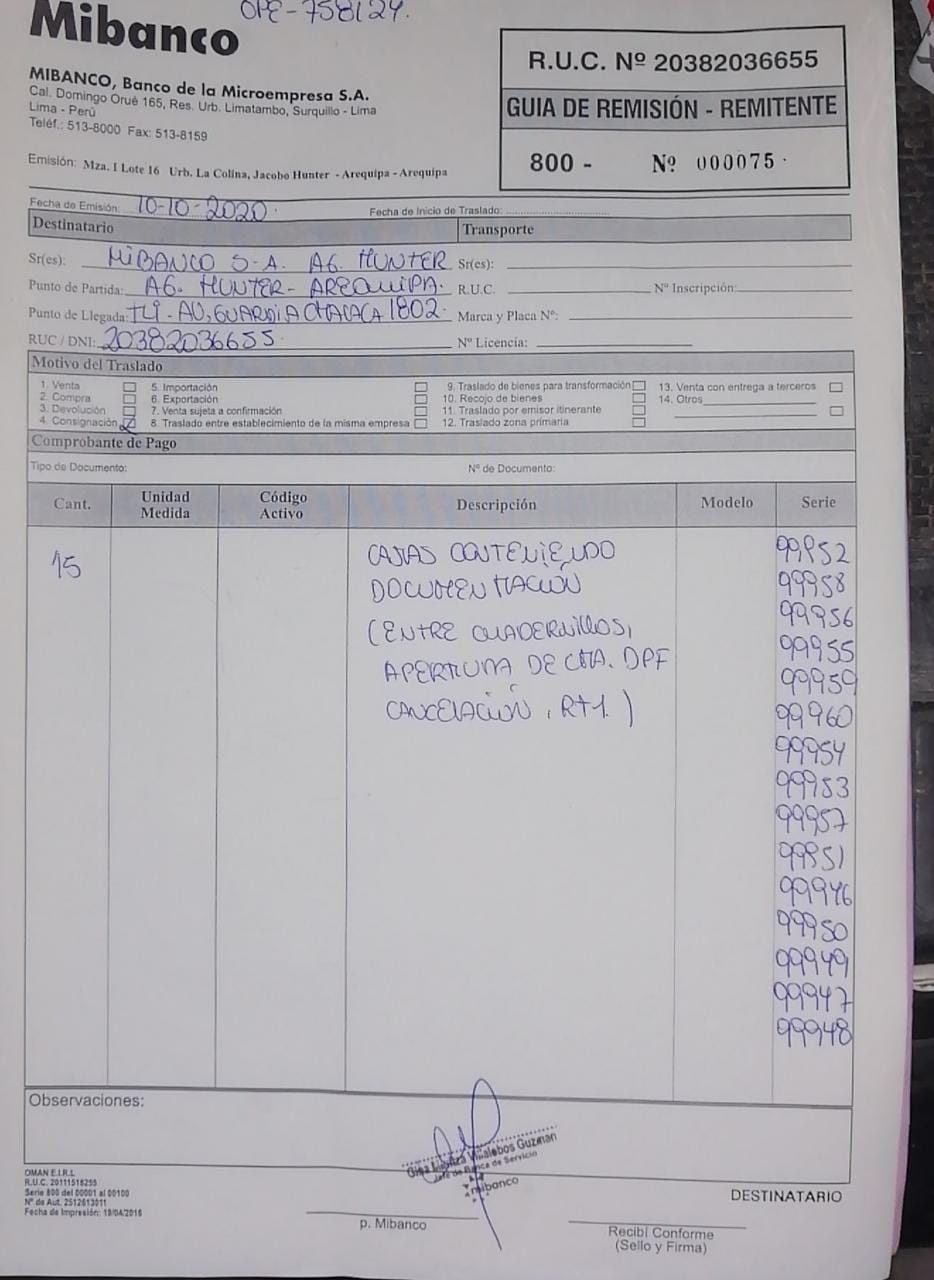 OPE-758124.
Mibanco
MIBANCO, Banco de la Microempresa S.A.
Cal. Domingo Orué 165, Res. Urb. Limatambo, Surquillo - Lima
Lima - Perú
Teléf.: 513-8000 Fax: 513-8159
Emisión: Mza. I Lote 16 Urb. La Colina, Jacobo Hunter - Arequipa - Arequipa
R.U.C. Nº 20382036655
GUIA DE REMISIÓN - REMITENTE
800 - Nº 000075
Fecha de Emisión: 10-10-2020 Fecha de Inicio de Traslado:
Destinatario Transporte
Sr(es): MIBANCO S-A. AG. HUNTER Sr(es):
Punto de Partida: AG. HUNTER- AREQUIPA. R.U.C. Nº Inscripción:
Punto de Llegada: AV, GUARDIA CHALACA 1802. Marca y Placa Nº:
RUC / DNI: 20382036655 Nº Licencia:
Motivo del Traslado
1. Venta 5. Importación 9. Traslado de bienes para transformación 13. Venta con entrega a terceros
2. Compra 6. Exportación 10. Recojo de bienes 14. Otros
3. Devolución 7. Venta sujeta a confirmación 11. Traslado por emisor itinerante
4. Consignación 8. Traslado entre establecimiento de la misma empresa 12. Traslado zona primaria
Comprobante de Pago
Tipo de Documento: Nº de Documento:
Cant. Unidad Medida Código Activo Descripción Modelo Serie
15 CAJAS CONTENIENDO 99952
DOCUMENTACIÓN 99958
(ENTRE CUADERNILLOS, 99956
APERTURA DE CTA. DPF 99955
CANCELACIÓN, ) 99959
99960
99954
99953
99957
99951
99946
99950
99949
99947
99948
Observaciones:
Villalobos Guzman
Jefe de Banca de Servicio
mibanco
OMAN E.I.R.L
R.U.C. 20111518255
Serie 800 del 00001 al 00100
Nº de Aut. 2512613011
Fecha de Impresión: 19/04/2016
p. Mibanco
DESTINATARIO
Recibí Conforme
(Sello y Firma)